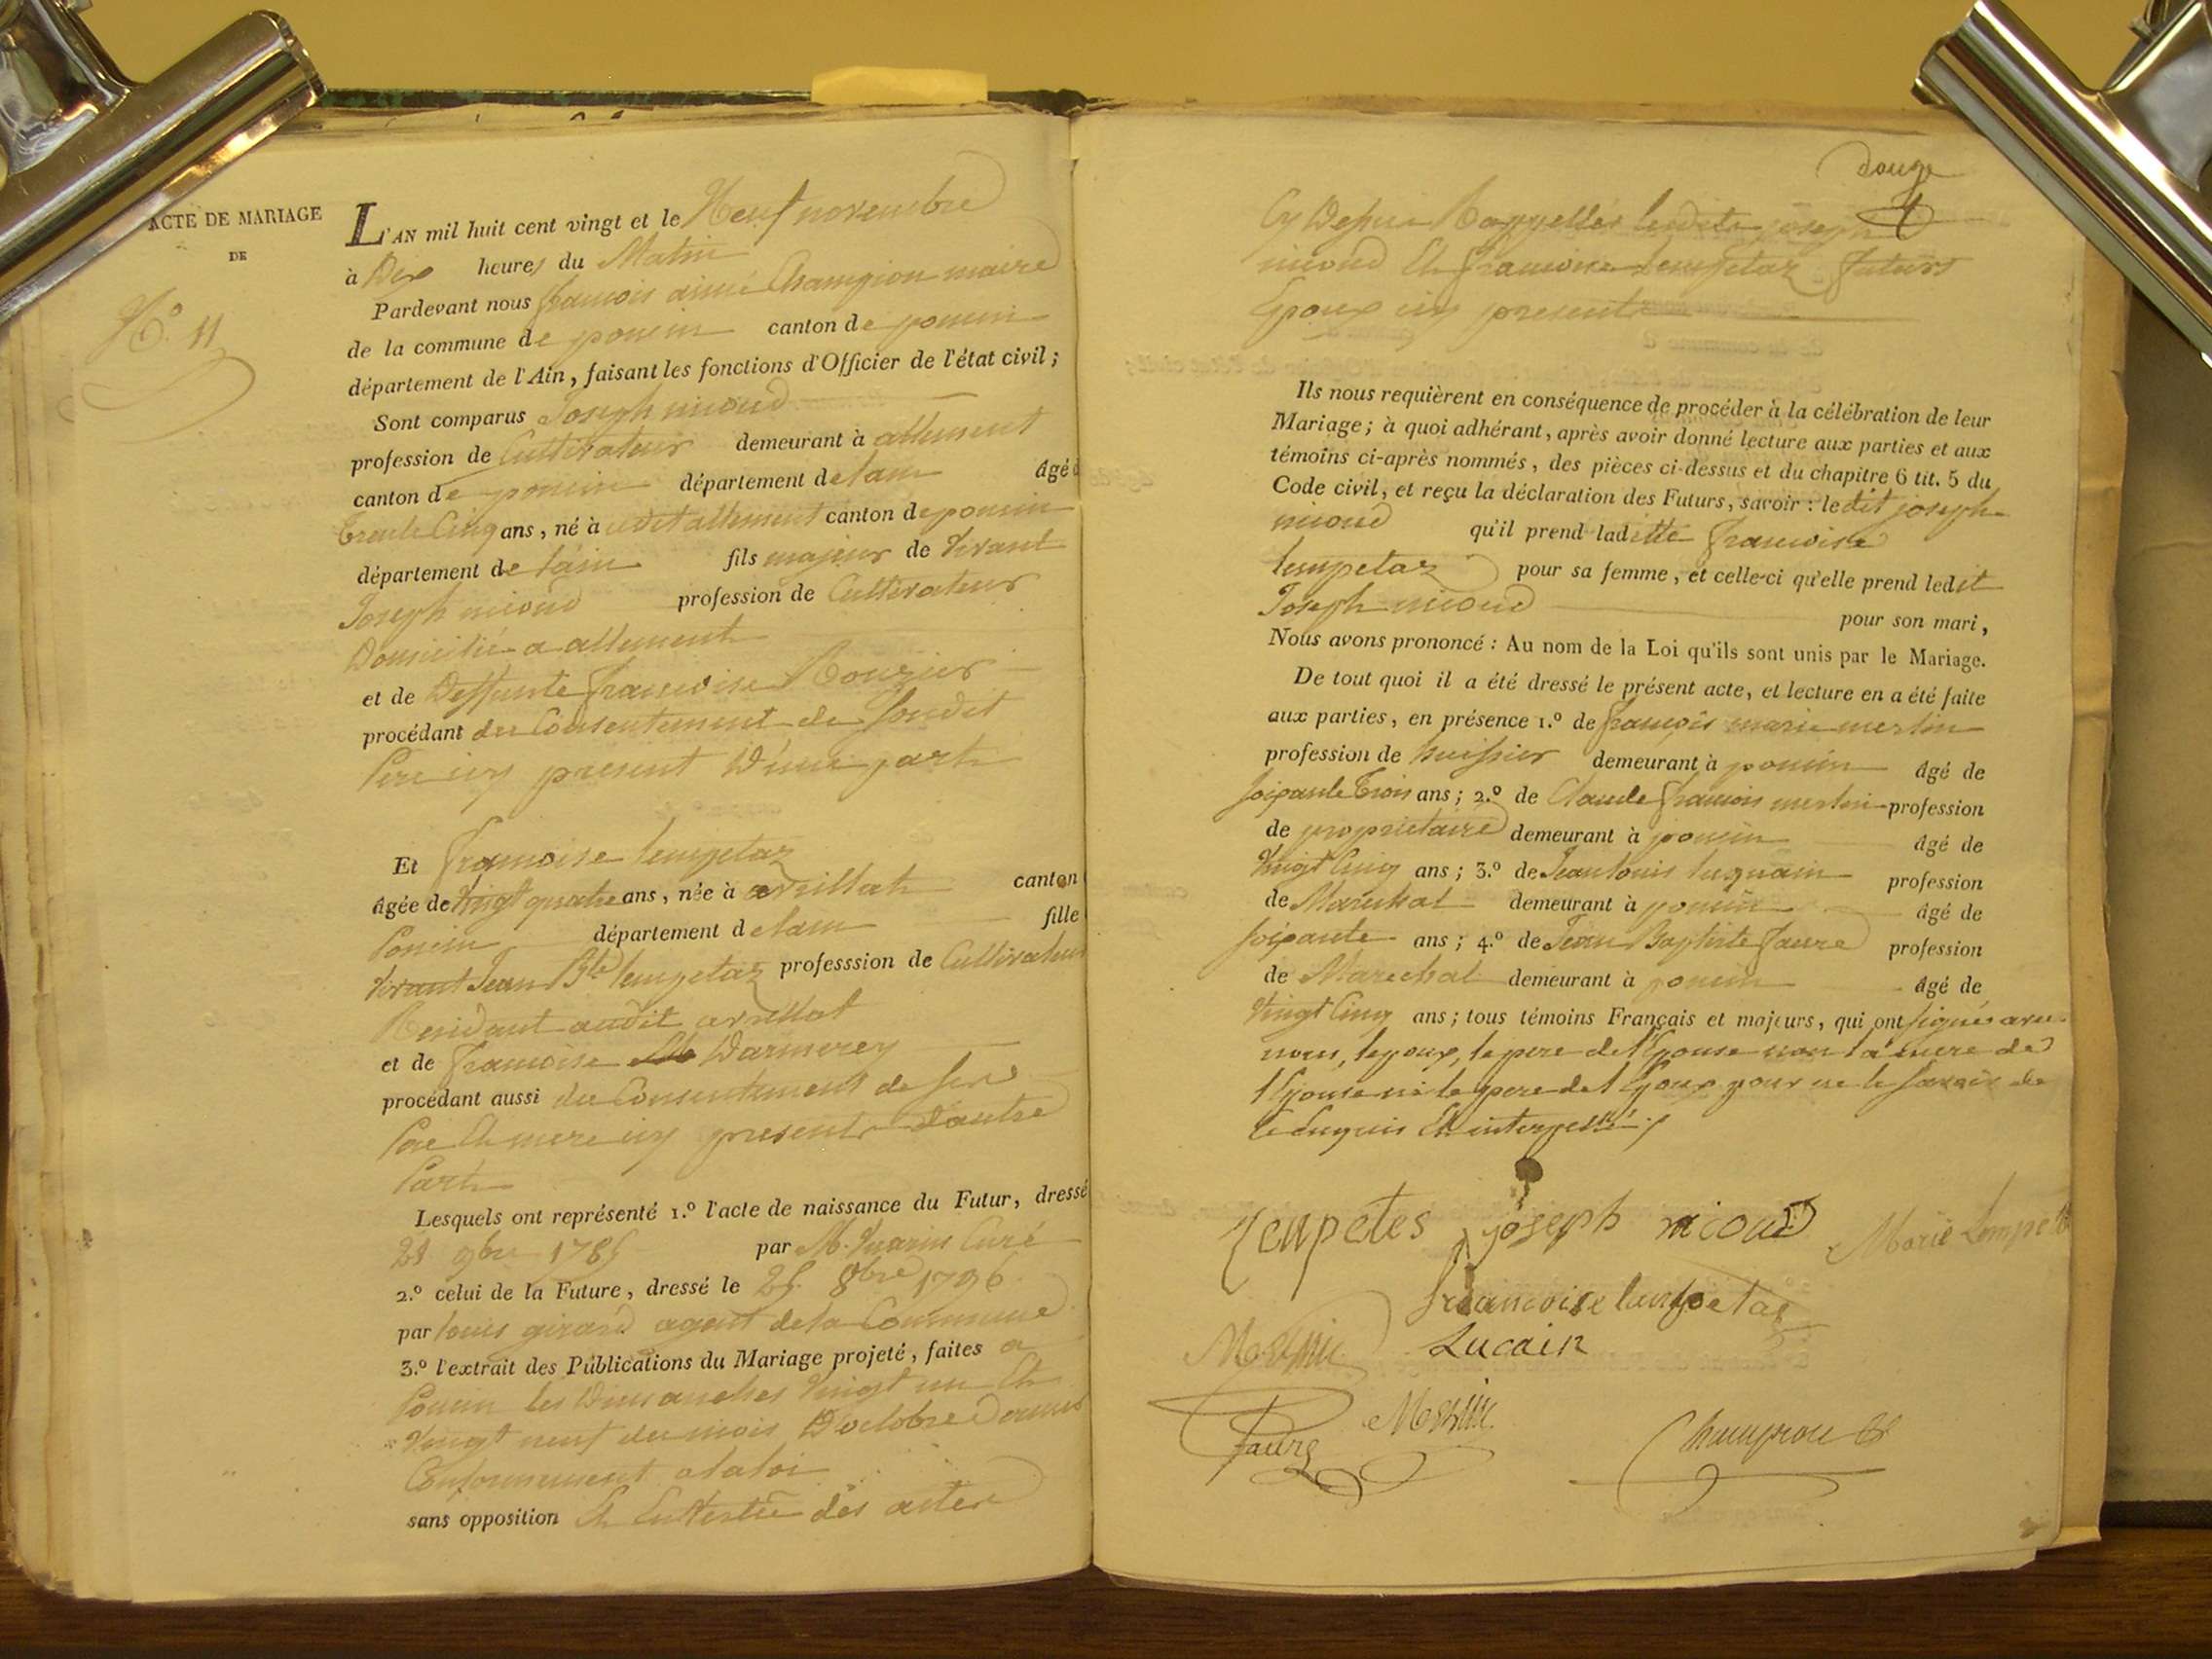 ACTE DE MARIAGE
DE
N.º 11
L'AN mil huit cent vingt et le Neuf novembre
à Dix heures du Matin
Pardevant nous françois aimé Champion maire
de la commune de poncin canton de poncin
département de l'Ain, faisant les fonctions d'Officier de l'état civil;
Sont comparus Joseph nicoud
profession de Cultivateur demeurant à allement
canton de poncin département de lain âgé d
trente Cinq ans, né à udit allement canton de poncin
département de l'ain fils majeur de vivant
Joseph nicoud profession de Cultivateur
Domicilié a allement
et de Deffunte françoise Rouzier
procédant du Consentement de Soudit
Pere icy present D'une part
Et françoise lempetaz
âgée de vingt quatre ans, née à avrillat canton
Poncin département de lain fille
vivant Jean Bte lempetaz professsion de Cultivateur
Residant audit avrillat
et de françoise Darmerey
procédant aussi du Consentement de ses
Pere Et mere icy presents D'autre
Part
Lesquels ont représenté 1.º l'acte de naissance du Futur, dressé
21 9bre 1785 par M. Curé
2.º celui de la Future, dressé le 25. 8bre 1796
par louis girard agent de la Commune
3.º l'extrait des Publications du Mariage projeté, faites a
Poncin les Dimanches vingt un Et
vingt neuf du mois D'octobre Dernier
Conformement a la loi
sans opposition Et des actes
douze
Cy Dessus Rappellés lesdits joseph
nicoud Et françoise Lempetaz futurs
Epoux icy presents
Ils nous requièrent en conséquence de procéder à la célébration de leur
Mariage; à quoi adhérant, après avoir donné lecture aux parties et aux
témoins ci-après nommés, des pièces ci-dessus et du chapitre 6 tit. 5 du
Code civil, et reçu la déclaration des Futurs, savoir: ledit joseph
nicoud qu'il prend ladette françoise
lempetaz pour sa femme, et celle-ci qu'elle prend ledit
Joseph nicoud pour son mari,
Nous avons prononcé: Au nom de la Loi qu'ils sont unis par le Mariage.
De tout quoi il a été dressé le présent acte, et lecture en a été faite
aux parties, en présence 1.º de françois marie merlin
profession de huissier demeurant à poncin âgé de
soixante trois ans; 2.º de Claude françois merlin profession
de proprietaire demeurant à poncin âgé de
vingt Cinq ans; 3.º de Jean louis profession
de Marechal demeurant à poncin âgé de
soixante ans; 4.º de Jean Baptiste faure profession
de Marechal demeurant à poncin âgé de
vingt Cinq ans; tous témoins Français et majeurs, qui ont signés avec
nous, lepoux, le pere de l'Epouse non la mere de
l'Epouse ni le pere de l'Epoux pour ne le savoir de
ce enquis Et interpellé./.
lenpetes joseph nicoud Marie Lempet
francoise lanpetas
Merlin Lucain
Faure Merlin Champion